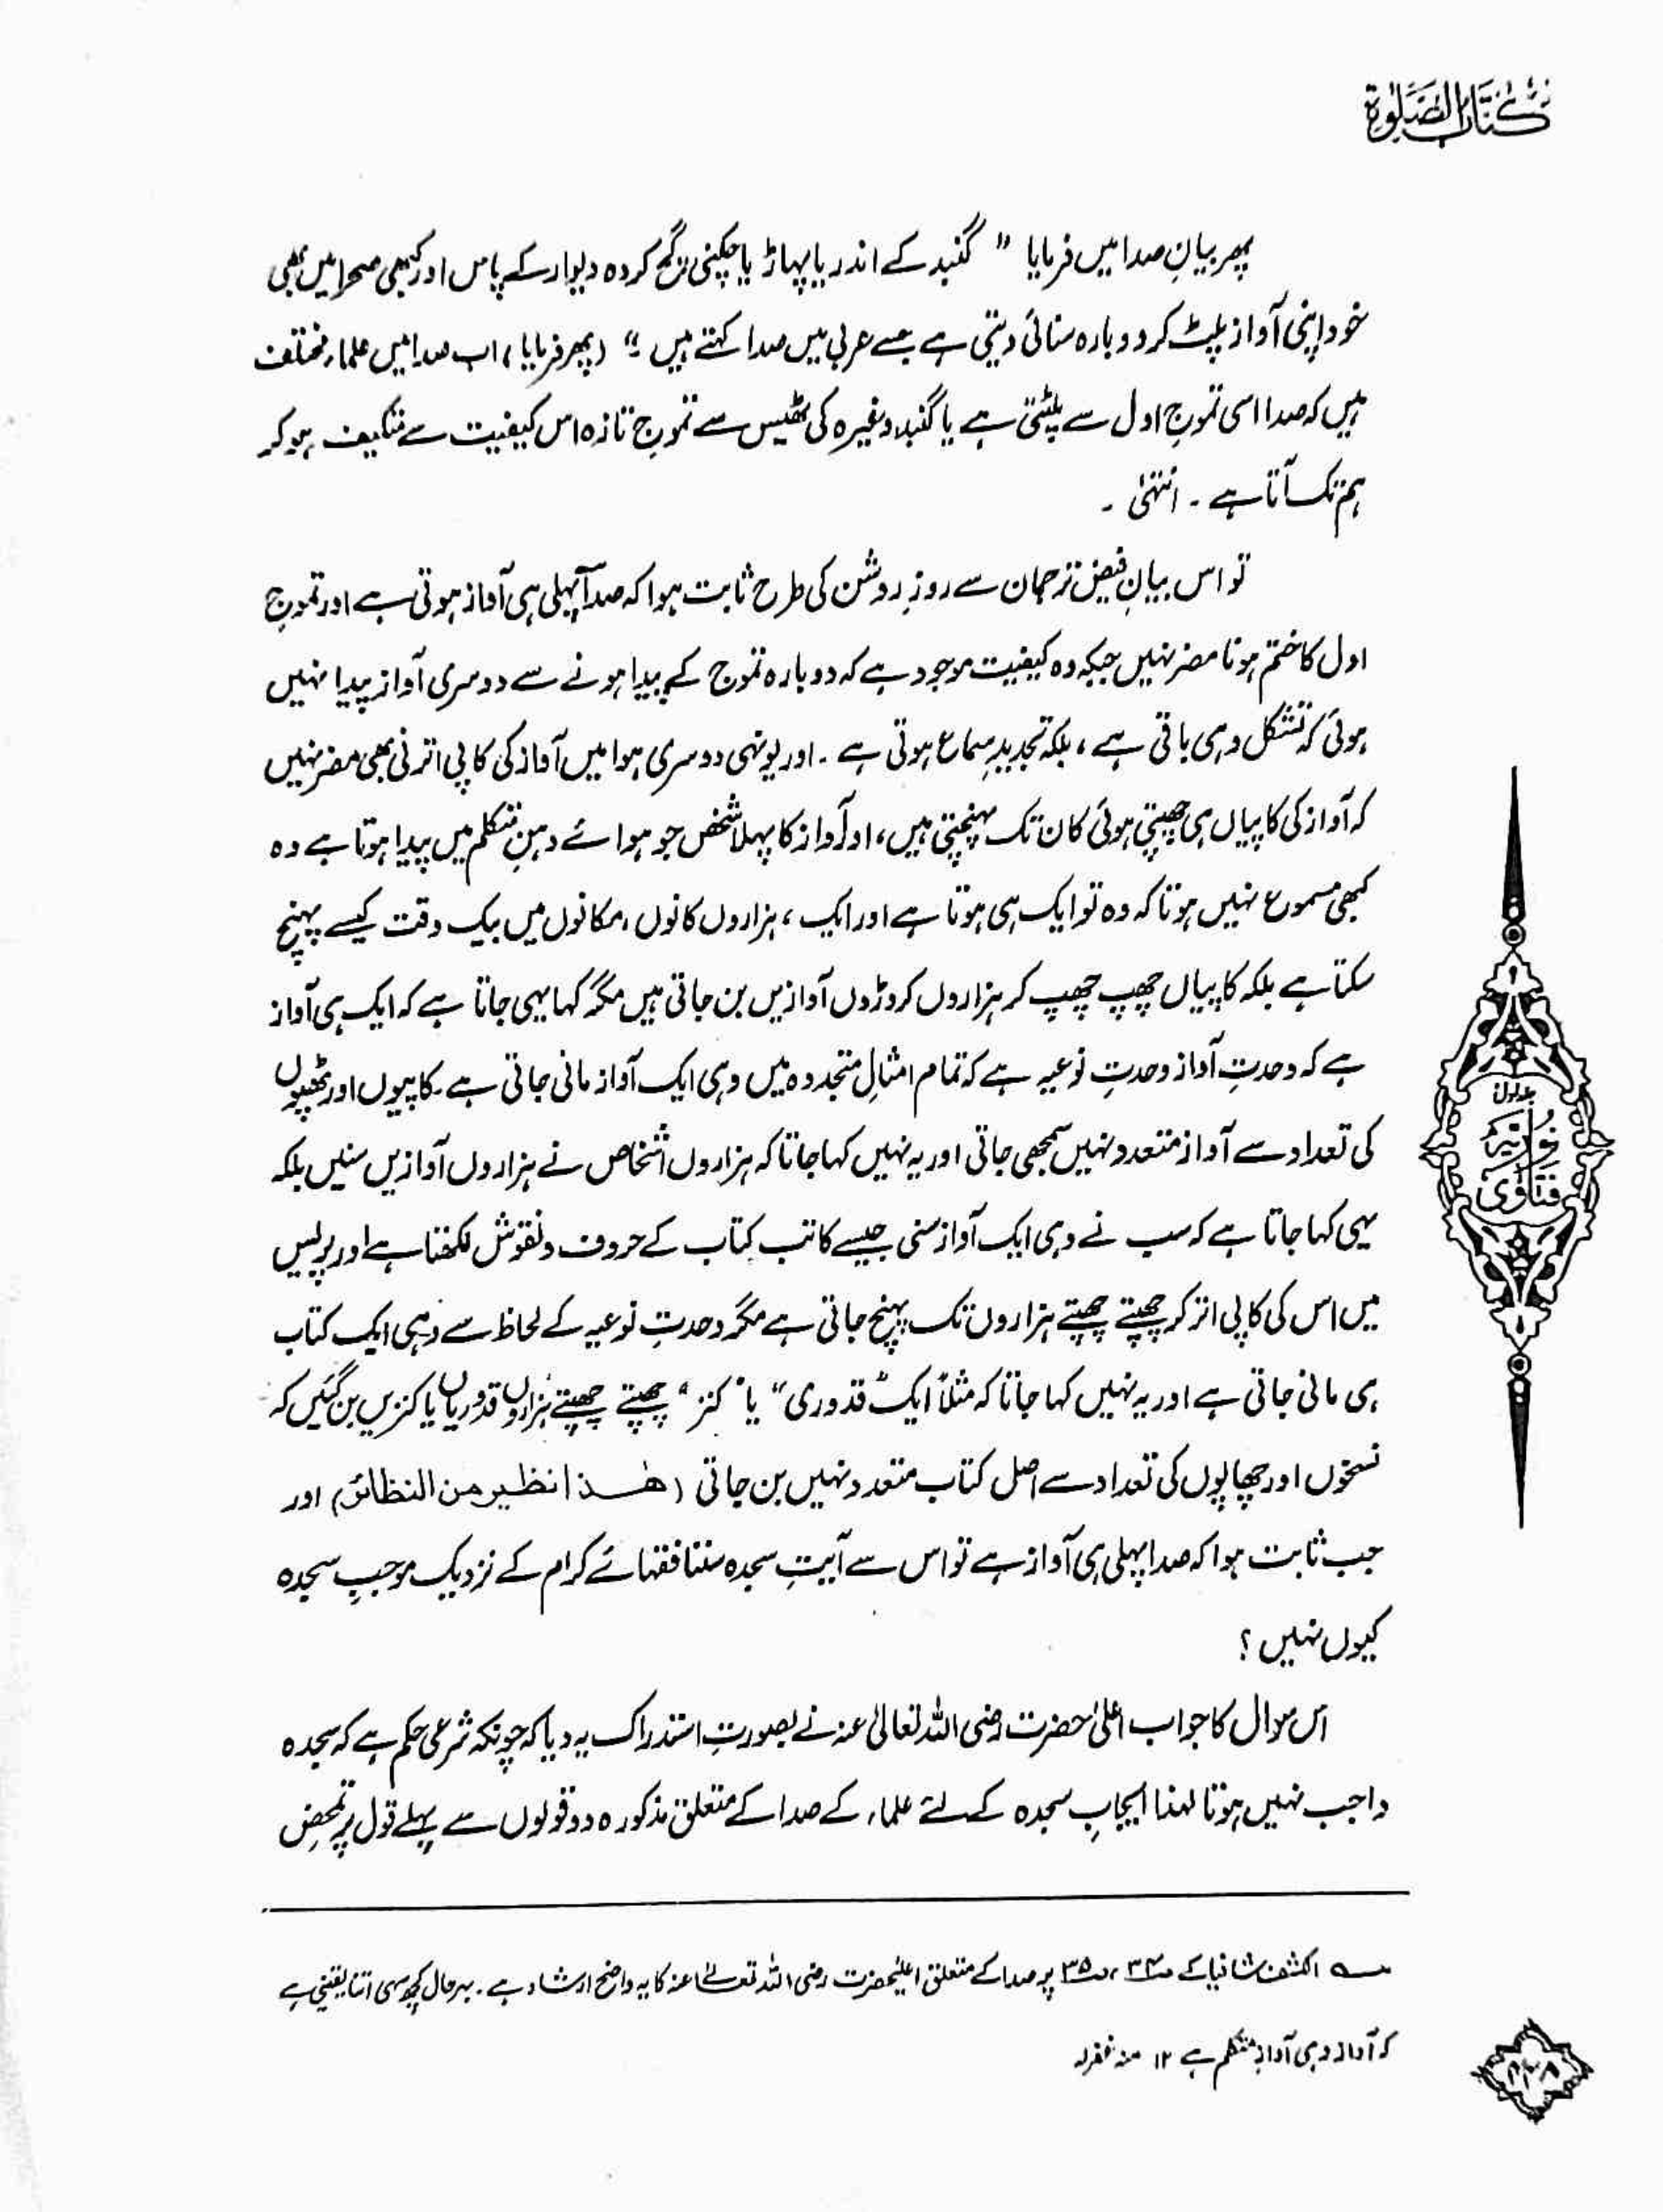 كتاب الصلوة
پھر بیانِ صدا میں فرمایا " گنبد کے اندر یا پہاڑ یا چکنی گچ کردہ دیوار کے پاس اور کبھی صحرا میں بھی
خود اپنی آواز پلٹ کر دوبارہ سنائی دیتی ہے جسے عربی میں صدا کہتے ہیں ؎" (پھر فرمایا) اب صدا میں علماء مختلف
ہیں کہ صدا اسی تموجِ اول سے پلٹتی ہے یا گنبد وغیرہ کی ٹھیس سے تموجِ تازہ اس کیفیت سے متکیف ہو کر
ہم تک آتا ہے ۔ انتہیٰ ۔
تو اس بیانِ فیض ترجمان سے روزِ روشن کی طرح ثابت ہوا کہ صدا پہلی ہی آواز ہوتی ہے اور تموجِ
اول کا ختم ہونا مضر نہیں جبکہ وہ کیفیت موجود ہے کہ دوبارہ تموج کے پیدا ہونے سے دوسری آواز پیدا نہیں
ہوئی کہ تشکل وہی باقی ہے ، بلکہ تجدیدِ سماع ہوتی ہے ۔ اور یونہی دوسری ہوا میں آواز کی کاپی اترنی بھی مضر نہیں
کہ آواز کی کاپیاں ہی چھپتی ہوئی کان تک پہنچتی ہیں ، اور آواز کا پہلا شخص جو ہوائے دہنِ متکلم میں پیدا ہوتا ہے وہ
کبھی مسموع نہیں ہوتا کہ وہ تو ایک ہی ہوتا ہے اور ایک ، ہزاروں کانوں ، مکانوں میں بیک وقت کیسے پہنچ
سکتا ہے بلکہ کاپیاں چھپ چھپ کر ہزاروں کروڑوں آوازیں بن جاتی ہیں مگر کہا یہی جاتا ہے کہ ایک ہی آواز
ہے کہ وحدتِ آواز وحدتِ نوعیہ ہے کہ تمام امثالِ متجددہ میں وہی ایک آواز مانی جاتی ہے ۔ کاپیوں اور ٹھپوں
کی تعداد سے آواز متعدد نہیں سمجھی جاتی اور یہ نہیں کہا جاتا کہ ہزاروں اشخاص نے ہزاروں آوازیں سنیں بلکہ
یہی کہا جاتا ہے کہ سب نے وہی ایک آواز سنی جیسے کاتب کتاب کے حروف و نقوش لکھتا ہے اور پریس
میں اس کی کاپی اتر کر چھپتے چھپتے ہزاروں تک پہنچ جاتی ہے مگر وحدتِ نوعیہ کے لحاظ سے وہی ایک کتاب
ہی مانی جاتی ہے اور یہ نہیں کہا جاتا کہ مثلاً ایک "قدوری" یا "کنز" چھپتے چھپتے ہزاروں قدوریاں یا کنزیں بن گئیں کہ
نسخوں اور چھاپوں کی تعداد سے اصل کتاب متعدد نہیں بن جاتی (هٰذا نظير من النظائر) اور
جب ثابت ہوا کہ صدا پہلی ہی آواز ہے تو اس سے آیتِ سجدہ سننا فقہائے کرام کے نزدیک موجبِ سجدہ
کیوں نہیں ؟
اس سوال کا جواب اعلیٰ حضرت رضی اللہ تعالیٰ عنہ نے بصورتِ استدراک یہ دیا کہ چونکہ شرعی حکم ہے کہ سجدہ
واجب نہیں ہوتا لہٰذا ایجابِ سجدہ کے لئے علماء کے صدا کے متعلق مذکورہ دو قولوں سے پہلے قول پر محض
جلد اول
فتاویٰ نوریہ
؎ الکشف شافیا کے ص۳۴ ، ص۳۵ پر صدا کے متعلق اعلیٰحضرت رضی اللہ تعالےٰ عنہ کا یہ واضح ارشاد ہے ۔ بہرحال کچھ سہی اتنا یقینی ہے
کہ آواز وہی آوازِ متکلم ہے ۱۲ منہ غفرلہ